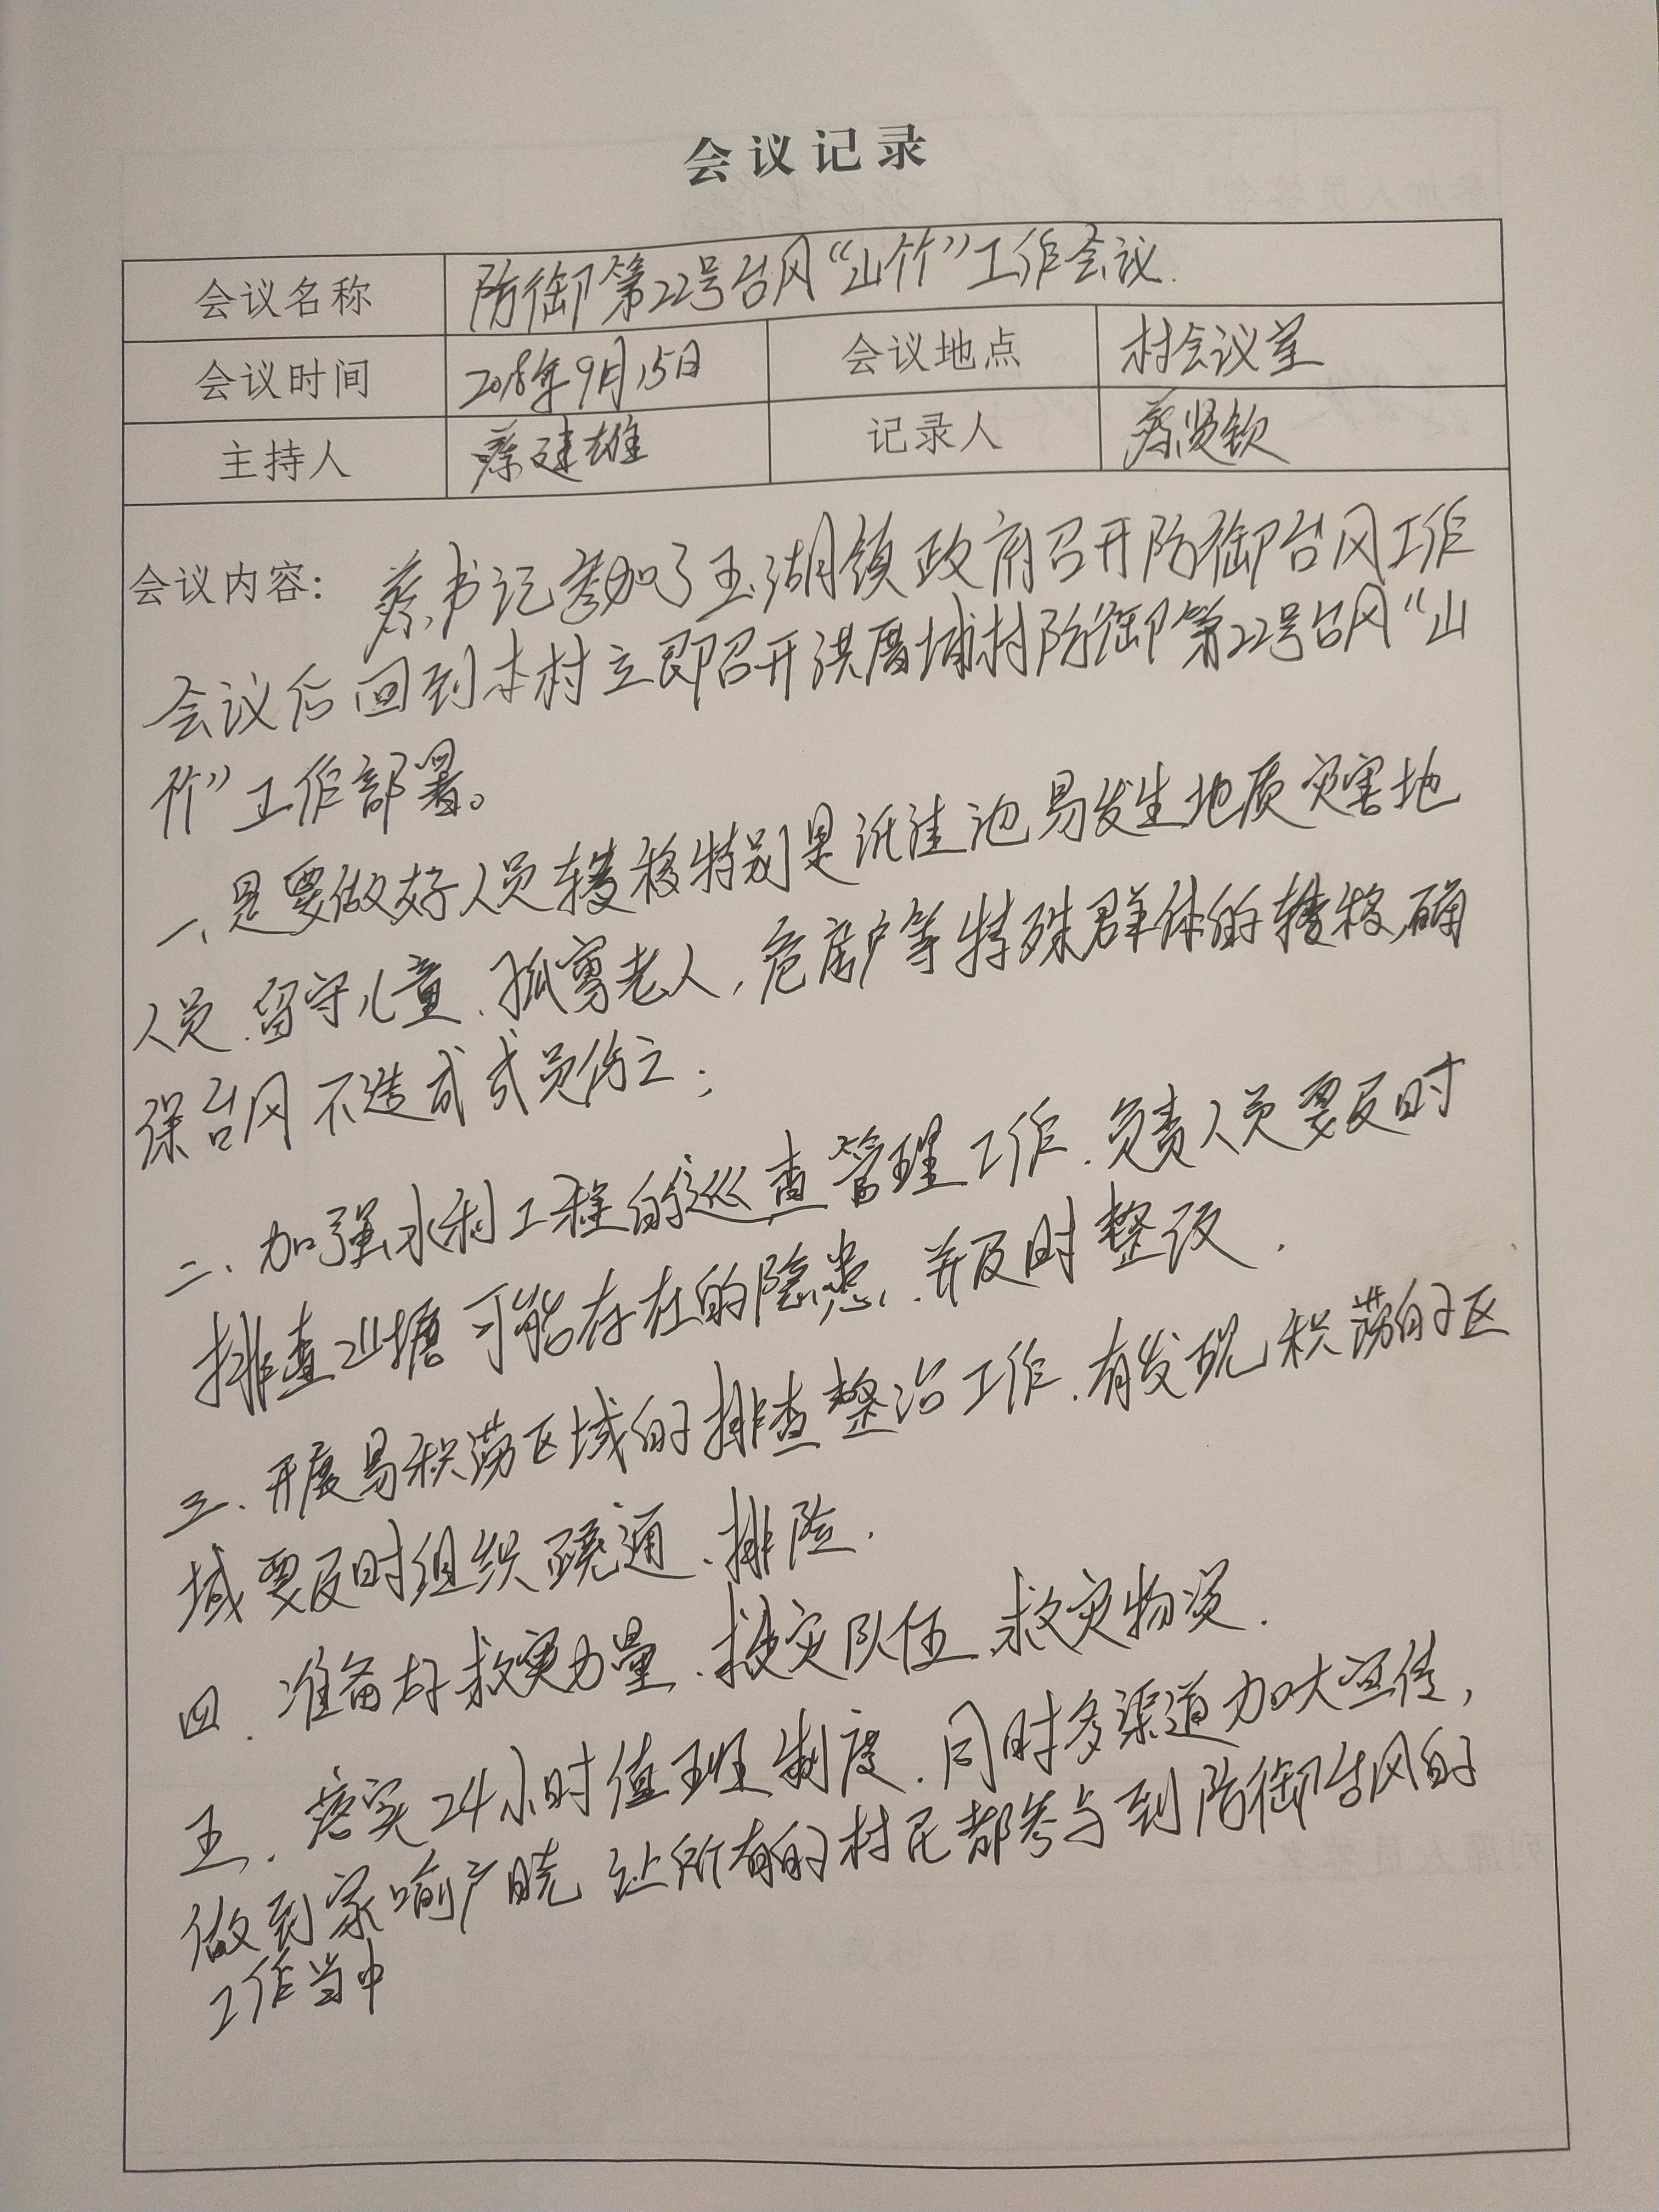 会议记录
会议名称 防御第22号台风“山竹”工作会议.
会议时间 2018年9月15日 会议地点 村会议室
主持人 蔡建雄 记录人 蔡贤钦
会议内容: 蔡书记参加了玉湖镇政府召开防御台风工作
会议后回到本村立即召开洪厝埔村防御第22号台风“山
竹”工作部署。
一、是要做好人员转移特别是低洼池易发生地质灾害地
人员.留守儿童、孤寡老人,危房户等特殊群体的转移,确
保台风不造成人员伤亡;
二、加强水利工程的巡查管理工作.负责人员要及时
排查山塘可能存在的隐患、并及时整改.
三、开展易积涝区域的排查整治工作.有发现积涝的区
域要及时组织疏通、排险.
四.准备好救灾力量、救灾队伍、救灾物资.
五.落实24小时值班制度.同时多渠道加大宣传,
做到家喻户晓 让所有的村民都参与到防御台风的
工作当中